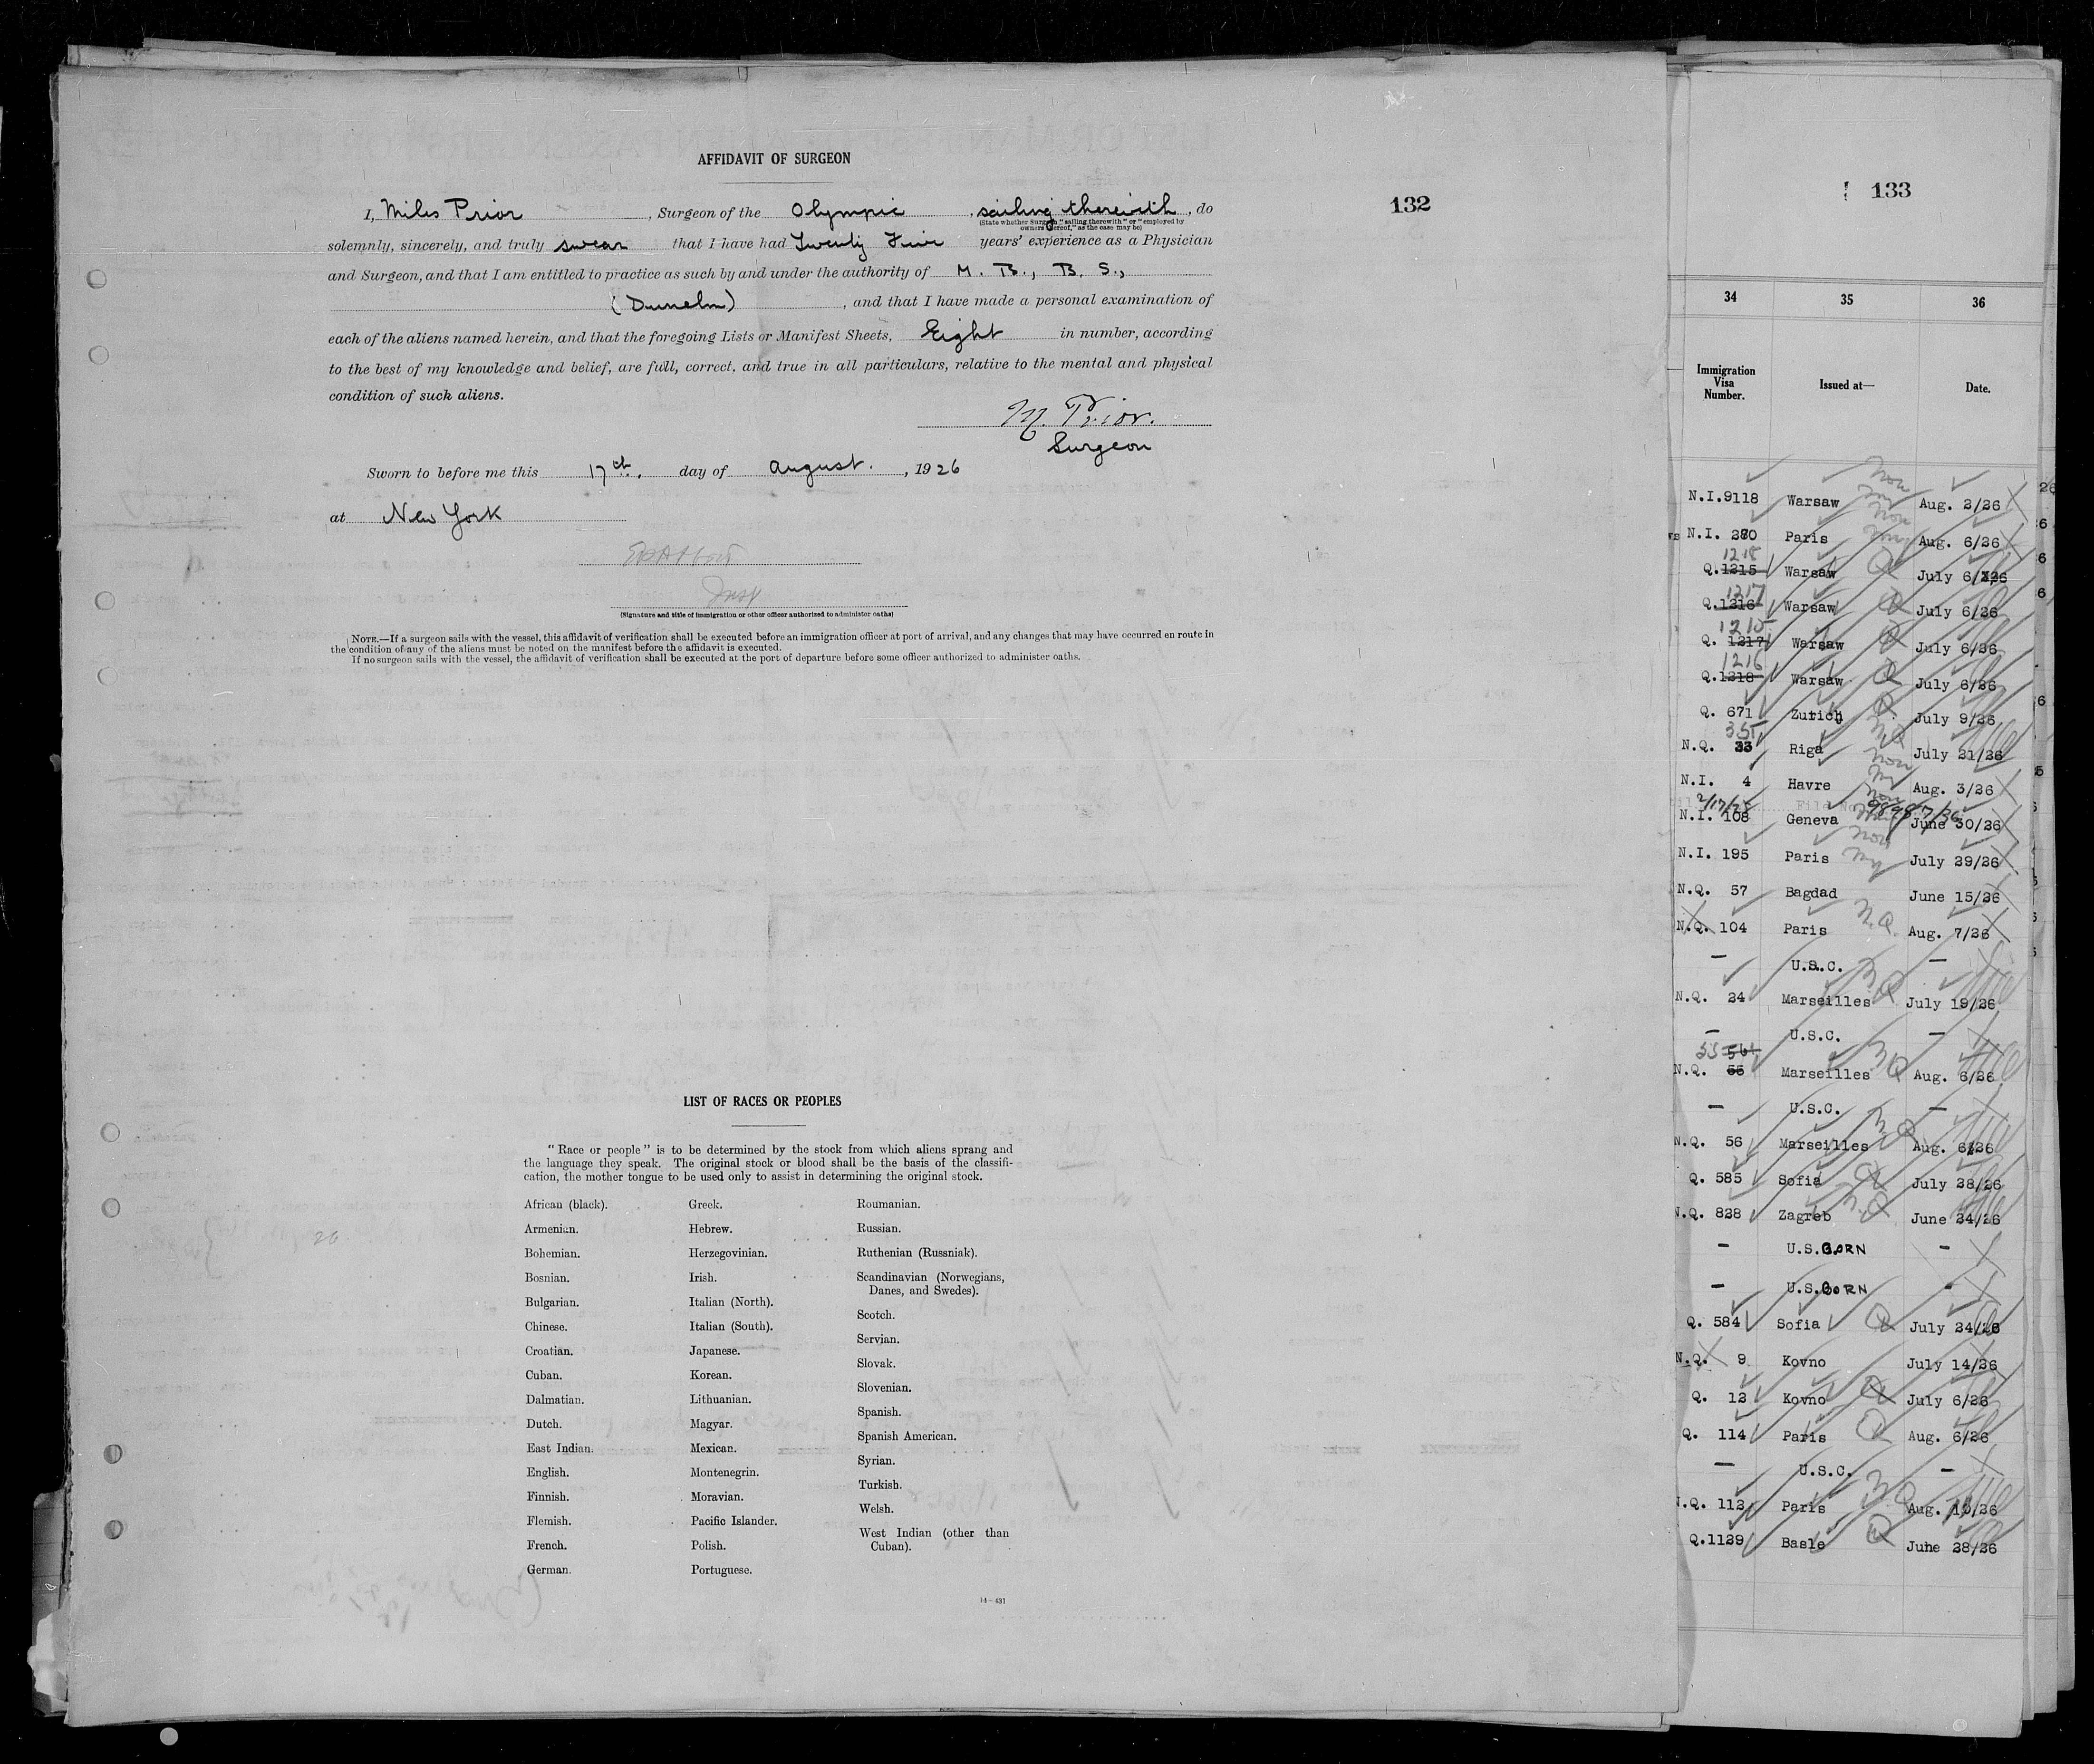 AFFIDAVIT OF SURGEON
132
I, Miles Prior, Surgeon of the Olympic, sailing therewith, do
(State whether Surgeon "sailing therewith" or "employed by
owners thereof," as the case may be)
solemnly, sincerely, and truly swear that I have had Twenty Five years' experience as a Physician
and Surgeon, and that I am entitled to practice as such by and under the authority of M. B., B. S.,
(Dunelm), and that I have made a personal examination of
each of the aliens named herein, and that the foregoing Lists or Manifest Sheets, Eight in number, according
to the best of my knowledge and belief, are full, correct, and true in all particulars, relative to the mental and physical
condition of such aliens.
M. Prior.
Surgeon
Sworn to before me this 17th. day of August., 1926
at New York
Insp
(Signature and title of immigration or other officer authorized to administer oaths)
NOTE.—If a surgeon sails with the vessel, this affidavit of verification shall be executed before an immigration officer at port of arrival, and any changes that may have occurred en route in
the condition of any of the aliens must be noted on the manifest before the affidavit is executed.
If no surgeon sails with the vessel, the affidavit of verification shall be executed at the port of departure before some officer authorized to administer oaths.
LIST OF RACES OR PEOPLES
"Race or people" is to be determined by the stock from which aliens sprang and
the language they speak. The original stock or blood shall be the basis of the classifi-
cation, the mother tongue to be used only to assist in determining the original stock.
African (black).
Armenian.
Bohemian.
Bosnian.
Bulgarian.
Chinese.
Croatian.
Cuban.
Dalmatian.
Dutch.
East Indian.
English.
Finnish.
Flemish.
French.
German.
Greek.
Hebrew.
Herzegovinian.
Irish.
Italian (North).
Italian (South).
Japanese.
Korean.
Lithuanian.
Magyar.
Mexican.
Montenegrin.
Moravian.
Pacific Islander.
Polish.
Portuguese.
Roumanian.
Russian.
Ruthenian (Russniak).
Scandinavian (Norwegians,
Danes, and Swedes).
Scotch.
Servian.
Slovak.
Slovenian.
Spanish.
Spanish American.
Syrian.
Turkish.
Welsh.
West Indian (other than
Cuban).
14—431
133
34 35 36
Immigration
Visa
Number.
Issued at—
Date.
N.I.9118 Warsaw Aug. 2/26
N.I. 280 Paris Aug. 6/26
1218
Q.1315 Warsaw July 6/26
1217
Q.1316 Warsaw July 6/26
1215
Q. 1317 Warsaw July 6/26
1216
Q.1318 Warsaw July 6/26
Q. 671 Zurich July 9/26
355
N.Q. 33 Riga July 21/26
N.I. 4 Havre Aug. 3/26
N.I. 108 Geneva June 30/26
N.I. 195 Paris July 29/26
N.Q. 57 Bagdad June 15/26
N.Q. 104 Paris Aug. 7/26
— U.S.C. —
N.Q. 24 Marseilles July 19/26
— U.S.C. —
55 54
N.Q. 55 Marseilles Aug. 6/26
— U.S.C. —
N.Q. 56 Marseilles Aug. 6/26
Q. 585 Sofia July 28/26
N.Q. 828 Zagreb June 24/26
— U.S. BORN —
— U.S. BORN —
Q. 584 Sofia July 24/26
N.Q. 9 Kovno July 14/26
Q. 12 Kovno July 6/26
Q. 114 Paris Aug. 6/26
— U.S.C. —
N.Q. 112 Paris Aug. 10/26
Q.1129 Basle June 28/26